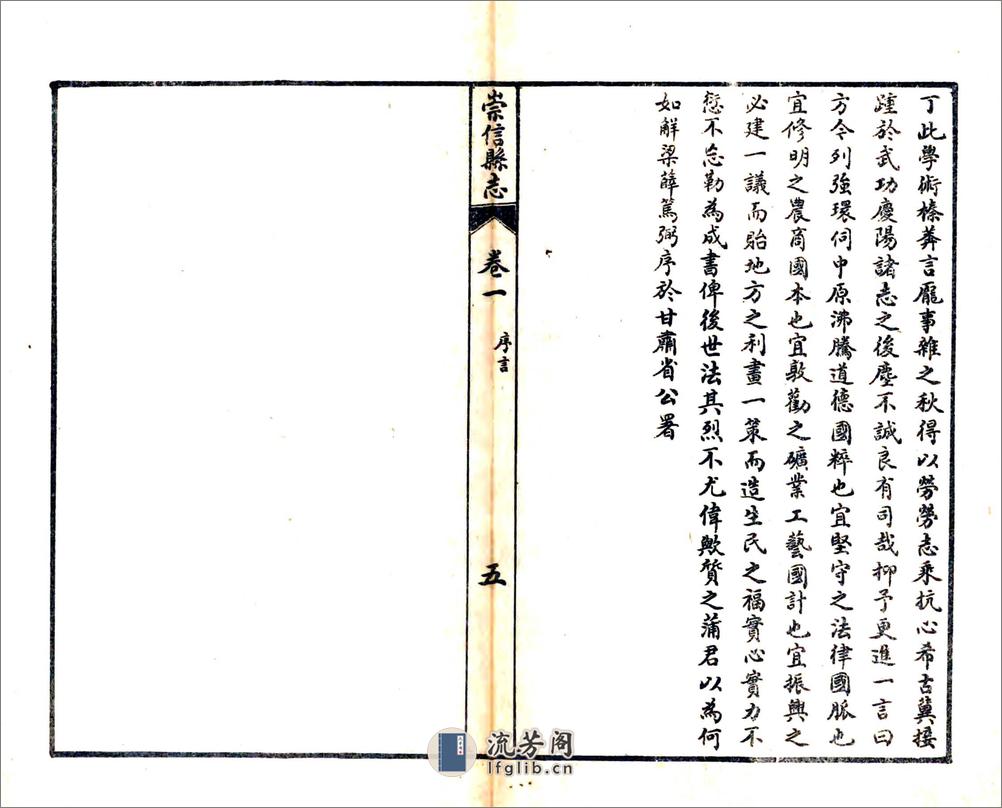 丁此學術榛莽言龐事雜之秋得以勞勞志乘抗心希古冀接
踵於武功慶陽諸志之後塵不誠良有司哉抑予更進一言曰
方今列強環伺中原沸騰道德國粹也宜堅守之法律國脈也
宜修明之農商國本也宜敦勸之礦業工藝國計也宜振興之
必建一議而貽地方之利畫一策而造生民之福實心實力不
愆不忘勒為成書俾後世法其烈不尤偉歟質之蒲君以為何
如解梁薛篤弼序於甘肅省公署
崇信縣志
卷一
序言
五
流芳阁
lfglib.cn